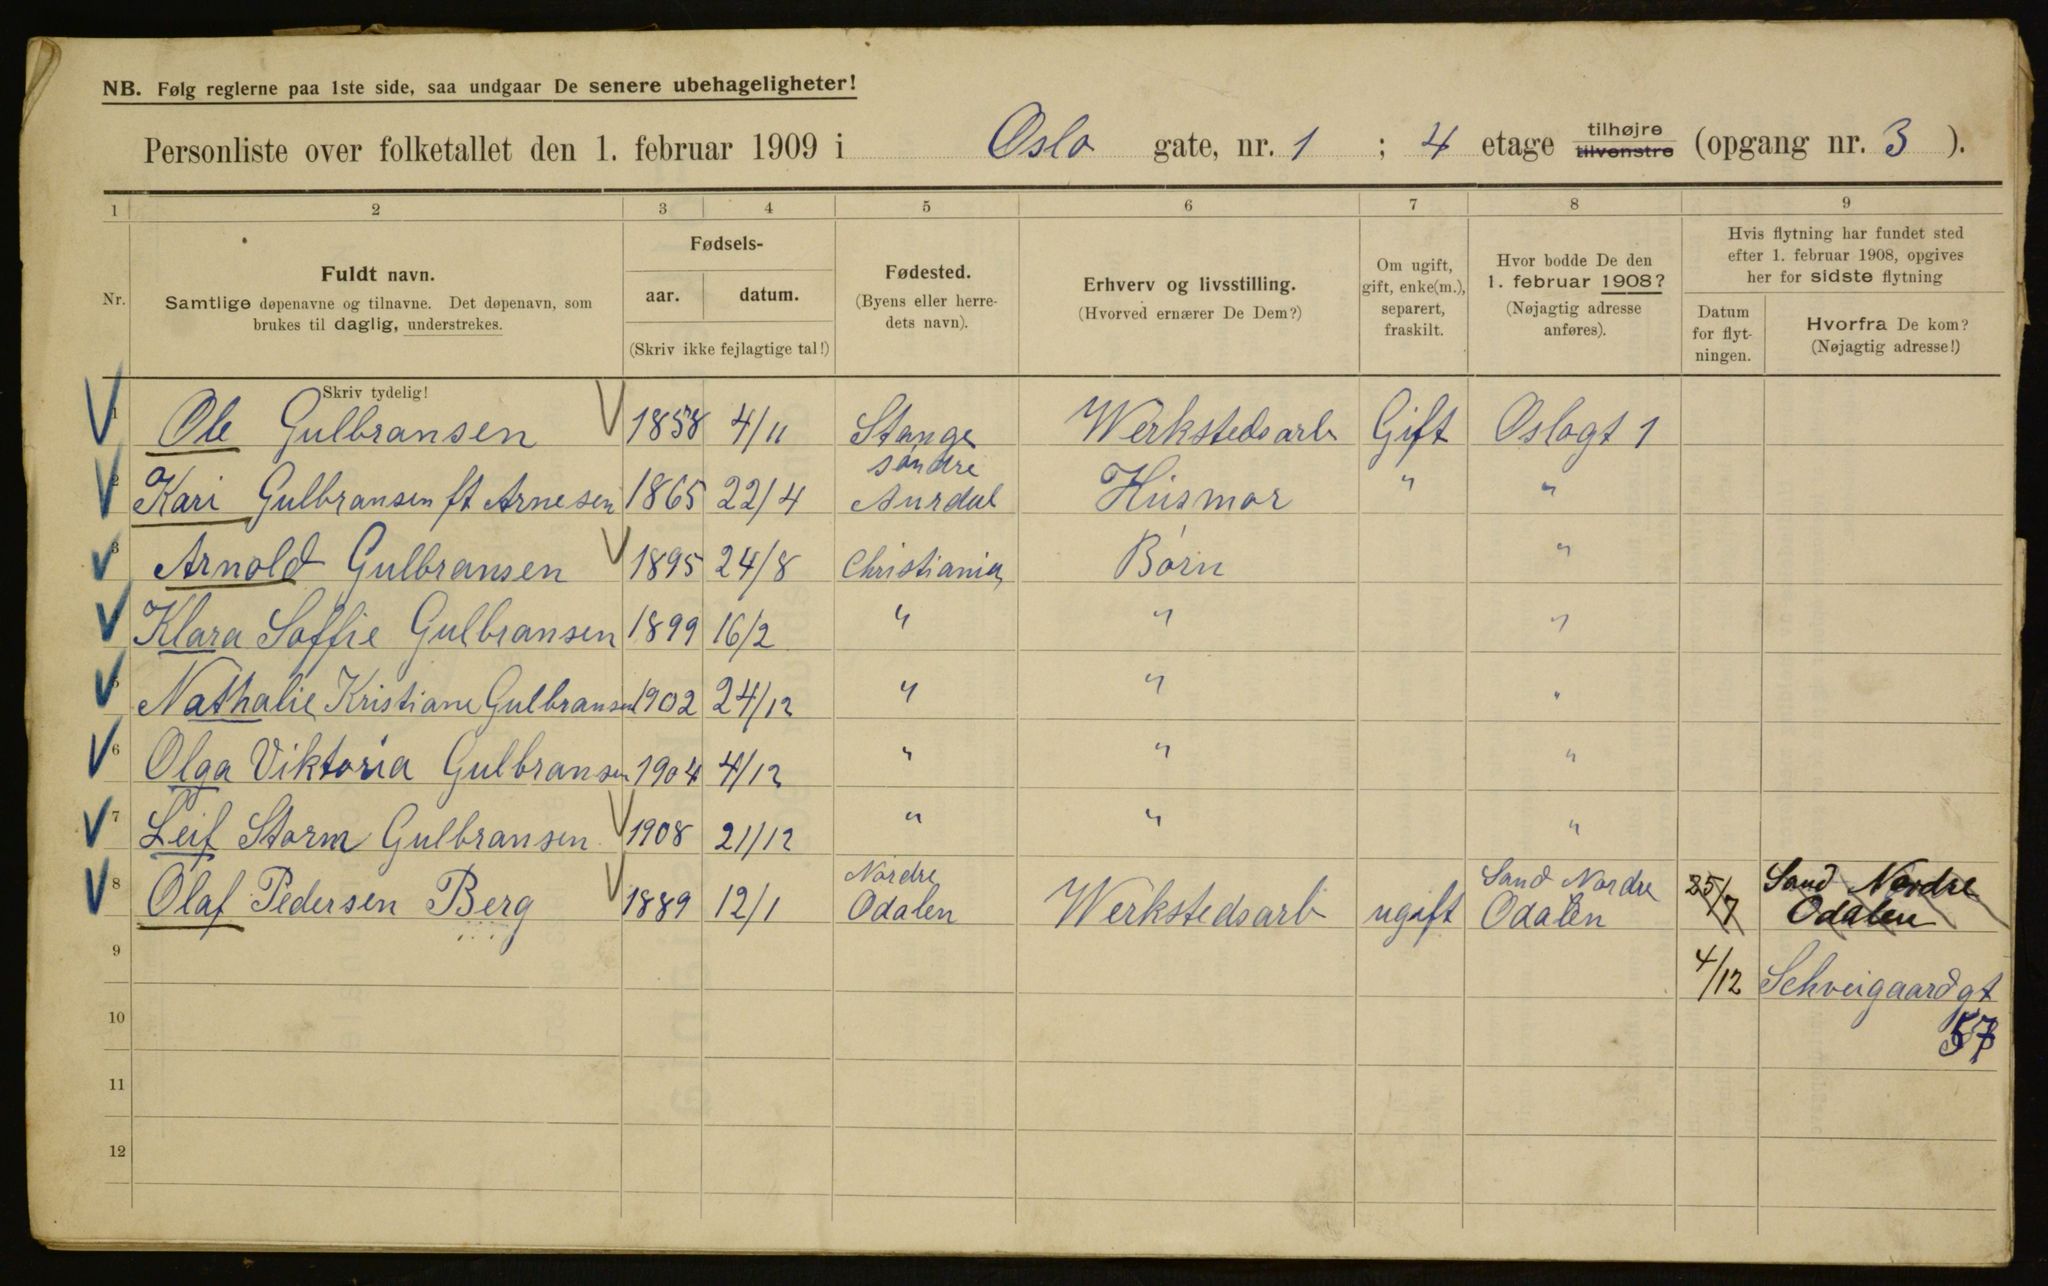 NB. Følg reglerne paa 1ste side, saa undgaar De senere ubehageligheter!
Personliste over folketallet den 1. februar 1909 i Oslo gate, nr. 1 ; 4 etage tilhøjre tilvenstre (opgang nr. 3 ).
1 2 3 4 5 6 7 8 9
Nr.
Fuldt navn.
Samtlige døpenavne og tilnavne. Det døpenavn, som
brukes til daglig, understrekes.
Skriv tydelig!
Fødsels-
aar. datum.
(Skriv ikke fejlagtige tal!)
Fødested.
(Byens eller herre-
dets navn).
Erhverv og livsstilling.
(Hvorved ernærer De Dem?)
Om ugift,
gift, enke(m.),
separert,
fraskilt.
Hvor bodde De den
1. februar 1908?
(Nøjagtig adresse
anføres).
Hvis flytning har fundet sted
efter 1. februar 1908, opgives
her for sidste flytning
Datum
for flyt-
ningen.
Hvorfra De kom?
(Nøjagtig adresse!)
1 Ole Gulbransen 1858 4/11 Stange Werkstedsarb Gift Oslogt 1
2 Kari Gulbransen ft Arnesen 1865 22/4 søndre Aurdal Husmor " "
3 Arnold Gulbransen 1895 24/8 Christiania Børn "
Klara Soffie Gulbransen 1899 16/2 " " "
5 Nathalie Kristiane Gulbransen 1902 24/12 " " "
6 Olga Viktoria Gulbransen 1904 4/12 " " "
7 Leif Storm Gulbransen 1908 21/12 " " "
8 Olaf Pedersen Berg 1889 12/1 Nordre Odalen Werkstedsarb ugift Sand Nordre Odalen 25/7 Sand Nordre Odalen
9 4/12 Schveigaardgt
57
10
11
12